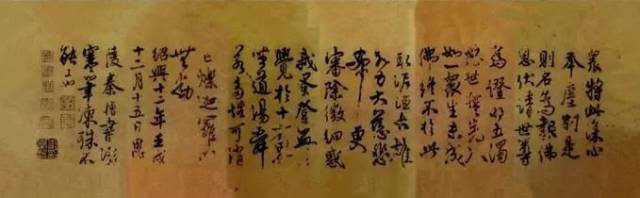 將此深心
奉塵刹是
則名為報佛
恩伏請世尊
為證明五濁
惡世誓先入
如一眾生未成
佛終不於此
取泥洹大雄
大力大慈悲
希更
審除微細惑
我早登
覺於十方界
坐道場舜
若多性可消
亡爍迦羅心
無動
紹興十二年壬戌
十二月十五日思
陵秦檜書
寒筆凍殊不
能工